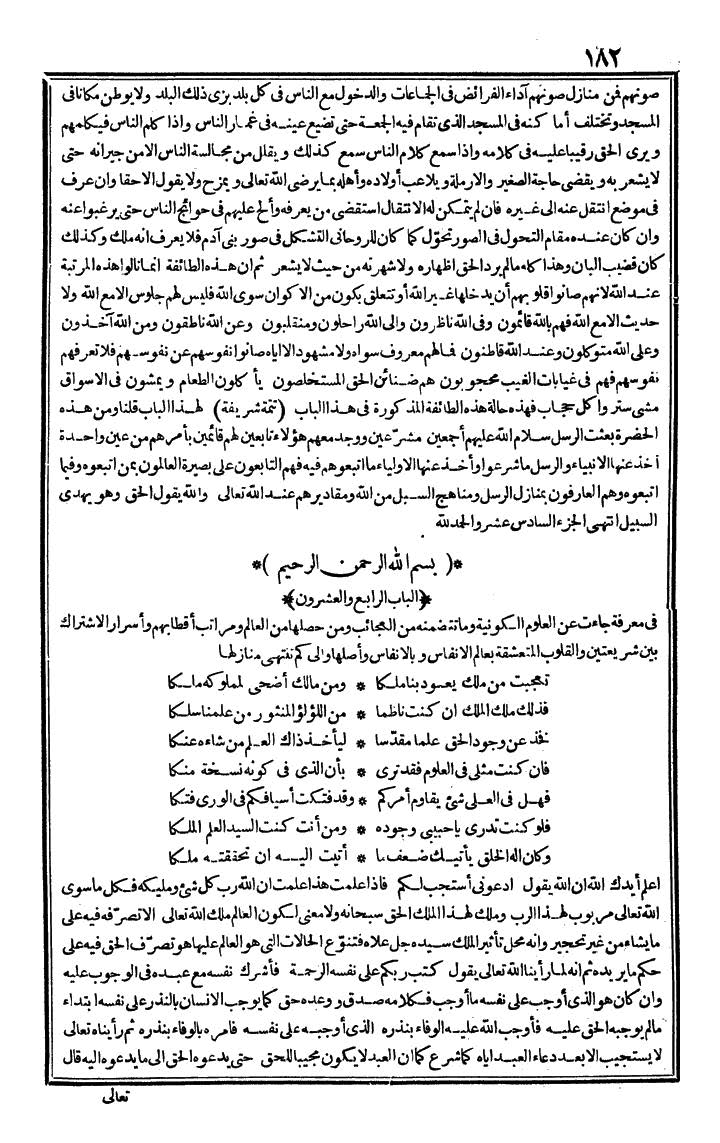 ١٨٢
صونهم فمن منازل صونهم آداء الفرائض فى الجاعات والدخول مع الناس فى كل بلد بزى ذلك البلد ولا يوطن مكانا فى
المسجد وتختلف أما كنه فى المسجد الذى تقام فيه الجمعة حتى تضيع عينه فى غمار الناس واذا كلم الناس فيكلمهم
ويرى الحق رقيبا عليه فى كلامه واذا سمع كلام الناس سمع كذلك ويقلل من مجالسة الناس الا من جيرانه حتى
لا يشعر به ويقضى حاجة الصغير والارملة ويلاعب أولاده وأهله بما يرضى الله تعالى ويمزح ولا يقول الا حقا وان عرف
فى موضع انتقل عنه الى غيره فان لم يتمكن له الانتقال استقضى من يعرفه وألح عليهم فى حوائج الناس حتى يرغبوا عنه
وان كان عنده مقام التحول فى الصور تحول كما كان للروحانى التشكل فى صور بنى آدم فلا يعرف انه ملك وكذلك
كان قضيب البان وهذا كله ما لم يرد الحق اظهاره ولا شهرته من حيث لا يشعر ثم ان هذه الطائفة انما نالوا هذه المرتبة
عند الله لانهم صانوا قلوبهم أن يدخلها غير الله أو تتعلق بكون من الاكوان سوى الله فليس لهم جلوس الا مع الله ولا
حديث الا مع الله فهم بالله قائمون وفى الله ناظرون والى الله راحلون ومنقلبون وعن الله ناطقون ومن الله آخذون
وعلى الله متوكلون وعند الله قاطنون فمالهم معروف سواه ولا مشهود الا اياه صانوا نفوسهم عن نفوسهم فلا تعرفهم
نفوسهم فهم فى غيابات الغيب محجوبون هم ضنائن الحق المستخلصون يأكلون الطعام ويمشون فى الاسواق
مشى ستر وأكل حجاب فهذه حالة هذه الطائفة المذكورة فى هذا الباب (تتمة شريفة) لهذا الباب قلنا ومن هذه
الحضرة بعثت الرسل سلام الله عليهم أجمعين مشرعين ووجد معهم هؤلاء تابعين لهم قائمين بأمرهم من عين واحدة
أخذ عنها الانبياء والرسل ما شرعوا وأخذ عنها الاولياء ما اتبعوهم فيه فهم التابعون على بصيرة العالمون بمن اتبعوه وفيما
اتبعوه وهم العارفون بمنازل الرسل ومناهج السبل من الله ومقاديرهم عند الله تعالى والله يقول الحق وهو يهدى
السبيل انتهى الجزء السادس عشر والحد لله
*( بسم الله الرحمن الرحيم )*
﴿الباب الرابع والعشرون﴾
فى معرفة جاءت عن العلوم الكونية وما تتضمنه من العجائب ومن حصلها من العالم ومراتب أقطابهم وأسرار الاشتراك
بين شريعتين والقلوب المتعشقة بعالم الانفاس وبالانفاس وأصلها والى كم تنتهى منازلها
تعجبت من ملك يعود بنا ملكا * ومن مالك أضحى لمملوكه ملكا
فذلك ملك الملك ان كنت ناظما * من اللؤلؤ المنثور من علمنا سلكا
فخذ عن وجود الحق علما مقدسا * ليأخذ ذاك العلم من شاءه عنكا
فان كنت مثلى فى العلوم فقد ترى * بأن الذى فى كونه نسخة منكا
فهل فى العلى شئ يقاوم أمركم * وقد فتكت أسيافكم فى الورى فتكا
فلو كنت تدرى يا حبيبى وجوده * ومن أنت كنت السيد العلم الملكا
وكان اله الخلق يأتيك ضعف ما * أتيت اليه ان تحققته ملكا
اعلم أيدك الله ان الله يقول ادعونى أستجب لكم فاذا علمت هذا علمت ان الله رب كل شئ ومليكه فكل ما سوى
الله تعالى مربوب لهذا الرب وملك لهذا الملك الحق سبحانه ولا معنى لكون العالم ملك الله تعالى الا تصرفه فيه على
ما يشاء من غير تحجير وانه محل تأثير الملك سيده جل علاه فتنوع الحالات التى هو العالم عليها هو تصرف الحق فيه على
حكم ما يريده ثم انه لما رأينا الله تعالى يقول كتب ربكم على نفسه الرحمة فأشرك نفسه مع عبده فى الوجوب عليه
وان كان هو الذى أوجب على نفسه ما أوجب فكلامه صدق ووعده حق كما يوجب الانسان بالنذر على نفسه ابتداء
ما لم يوجبه الحق عليه فأوجب الله عليه الوفاء بنذره الذى أوجبه على نفسه فامره بالوفاء بنذره ثم رأيناه تعالى
لا يستجيب الا بعد دعاء العبد اياه كما شرع كما ان العبد لا يكون مجيبا للحق حتى يدعوه الحق الى ما يدعوه اليه قال
تعالى